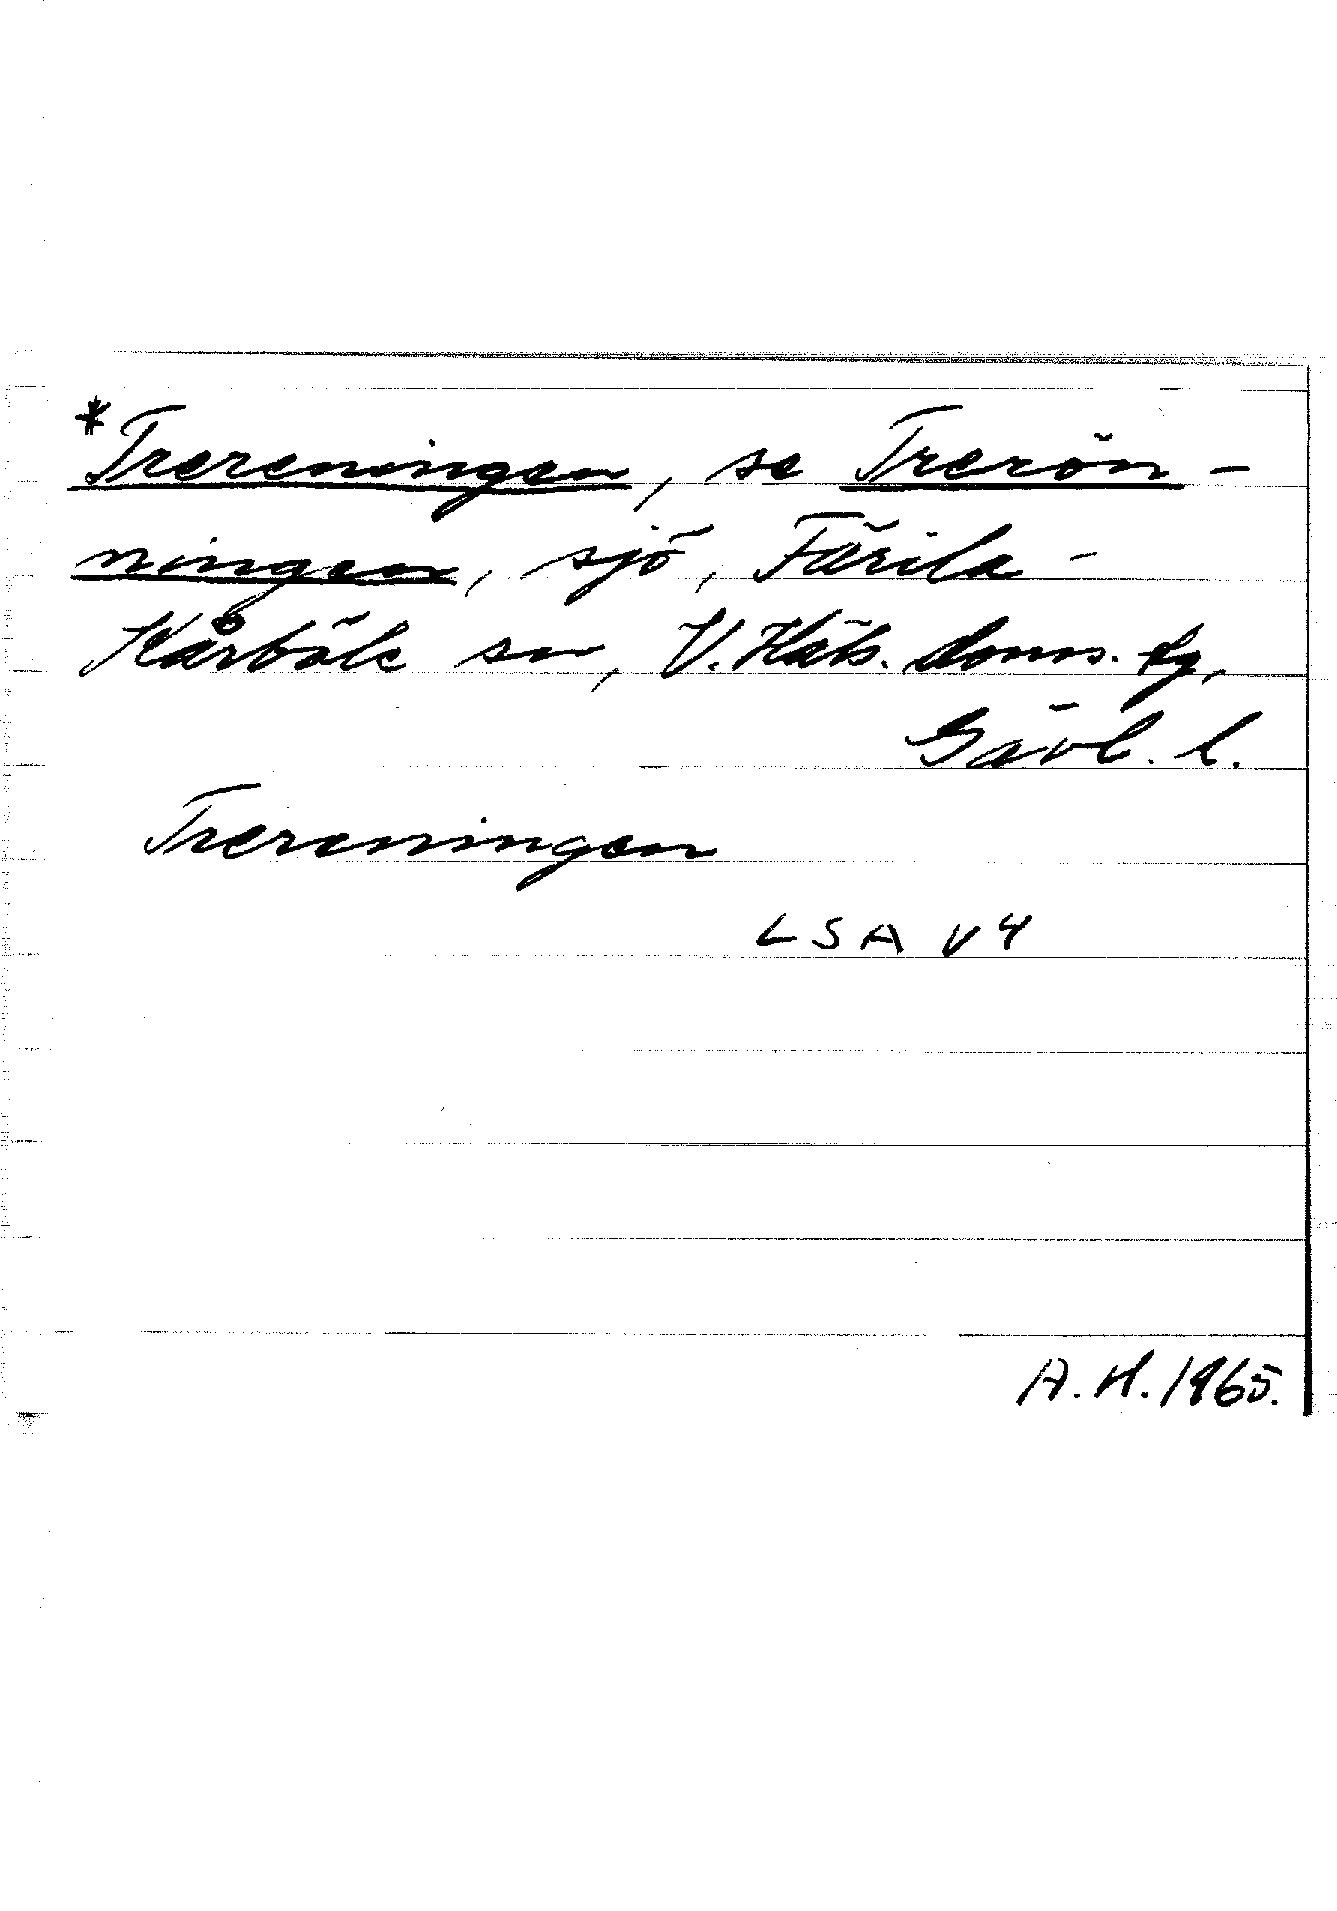 *Trereningen, se Trerön-
ningen, sjö, Färila-
Kårböle sn, V. Häls. doms. tg,
Gävl. l.
Trereningen
LSA V4
A. H. 1965.